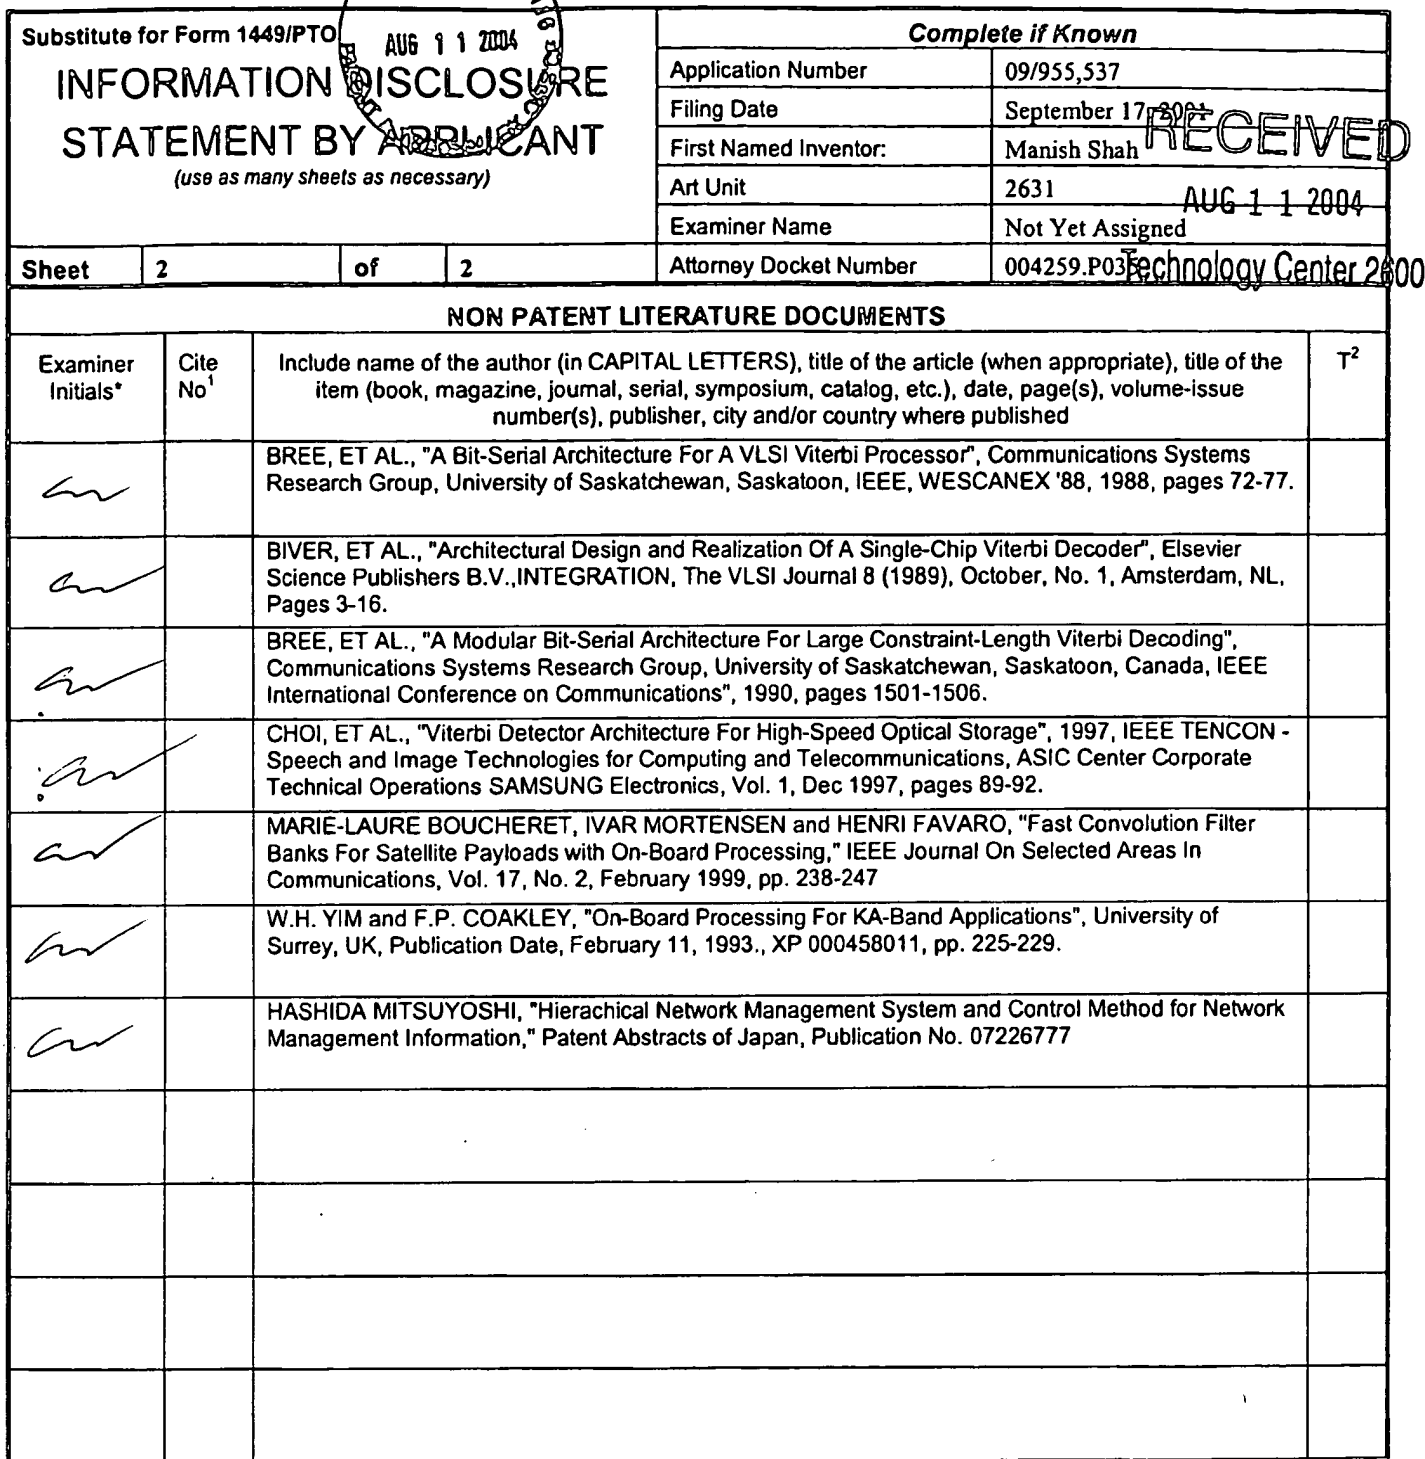 Substitute for Form 1449/PTO
AUG 11 2004
INFORMATION DISCLOSURE
STATEMENT BY APPLICANT
(use as many sheets as necessary)
Sheet 2 of 2
Complete if Known
Application Number 09/955,537
Filing Date September 17, 2001
First Named Inventor: Manish Shah
Art Unit 2631
Examiner Name Not Yet Assigned
Attorney Docket Number 004259.P03
RECEIVED
AUG 11 2004
Technology Center 2600
NON PATENT LITERATURE DOCUMENTS
Examiner Initials*
Cite No1
Include name of the author (in CAPITAL LETTERS), title of the article (when appropriate), title of the
item (book, magazine, journal, serial, symposium, catalog, etc.), date, page(s), volume-issue
number(s), publisher, city and/or country where published
T2
BREE, ET AL., "A Bit-Serial Architecture For A VLSI Viterbi Processor", Communications Systems
Research Group, University of Saskatchewan, Saskatoon, IEEE, WESCANEX '88, 1988, pages 72-77.
BIVER, ET AL., "Architectural Design and Realization Of A Single-Chip Viterbi Decoder", Elsevier
Science Publishers B.V.,INTEGRATION, The VLSI Journal 8 (1989), October, No. 1, Amsterdam, NL,
Pages 3-16.
BREE, ET AL., "A Modular Bit-Serial Architecture For Large Constraint-Length Viterbi Decoding",
Communications Systems Research Group, University of Saskatchewan, Saskatoon, Canada, IEEE
International Conference on Communications", 1990, pages 1501-1506.
CHOI, ET AL., "Viterbi Detector Architecture For High-Speed Optical Storage", 1997, IEEE TENCON -
Speech and Image Technologies for Computing and Telecommunications, ASIC Center Corporate
Technical Operations SAMSUNG Electronics, Vol. 1, Dec 1997, pages 89-92.
MARIE-LAURE BOUCHERET, IVAR MORTENSEN and HENRI FAVARO, "Fast Convolution Filter
Banks For Satellite Payloads with On-Board Processing," IEEE Journal On Selected Areas In
Communications, Vol. 17, No. 2, February 1999, pp. 238-247
W.H. YIM and F.P. COAKLEY, "On-Board Processing For KA-Band Applications", University of
Surrey, UK, Publication Date, February 11, 1993., XP 000458011, pp. 225-229.
HASHIDA MITSUYOSHI, "Hierachical Network Management System and Control Method for Network
Management Information," Patent Abstracts of Japan, Publication No. 07226777